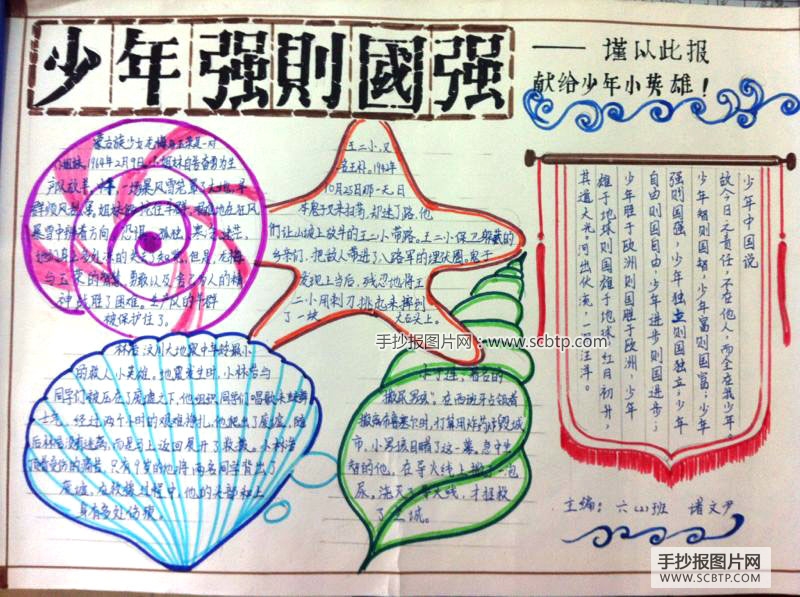 少年强則國强
——谨以此报
献给少年小英雄！
蒙古族少女龙梅与玉荣是一对
小姐妹，1964年2月9日，小姐妹自告奋勇为生
产队放羊，一场暴风雪笼罩了大地，羊
暴雪中辨着方向，恐惧、孤独、寒冷、迷茫，
神战胜了困难。生产队的羊群
被保护住了。
王二小，又
名王朴，1942年
10月25日那一天，日
本鬼子又来扫荡，却迷了路，他
们让山坡上放牛的王二小带路。王二小保卫躲藏的
乡亲们，把敌人带进了八路军的埋伏圈。鬼子
发现上当后，残忍地将王
二小用刺刀挑起来摔到
了一块大石头上。
林浩，汶川大地震中年龄最小
的救人小英雄。地震发生时，小林浩与
同学们被压在了废墟之下，他组织同学们唱歌来鼓舞
士气，经过两个小时的艰难挣扎，他爬出了废墟，随
后林浩没有逃离，而是马上返回展开了救援。小林浩
顶着受伤的痛苦，只有9岁的他将两名同学背出了
废墟，在救援过程中，他的头部和上
身有多处伤痕。
小于连，著名的
撒尿男孩，在西班牙占领者
撤离布鲁塞尔时，打算用炸药炸毁城
市，小男孩目睹了这一幕，急中生
智的他，在导火线上撒了一泡
尿，浇灭了导火线，才拯救
了全城。
少年中国说
故今日之责任，不在他人，而全在我少年。
少年智则国智，少年富则国富；少年
强则国强，少年独立则国独立；少年
自由则国自由，少年进步则国进步；
少年胜于欧洲则国胜于欧洲，少年
雄于地球则国雄于地球。红日初升，
其道大光。河出伏流，一泻汪洋。
主编：六(1)班 诸文尹
手抄报图片网：www.scbtp.com
手抄报图片网
WWW.SCBTP.COM